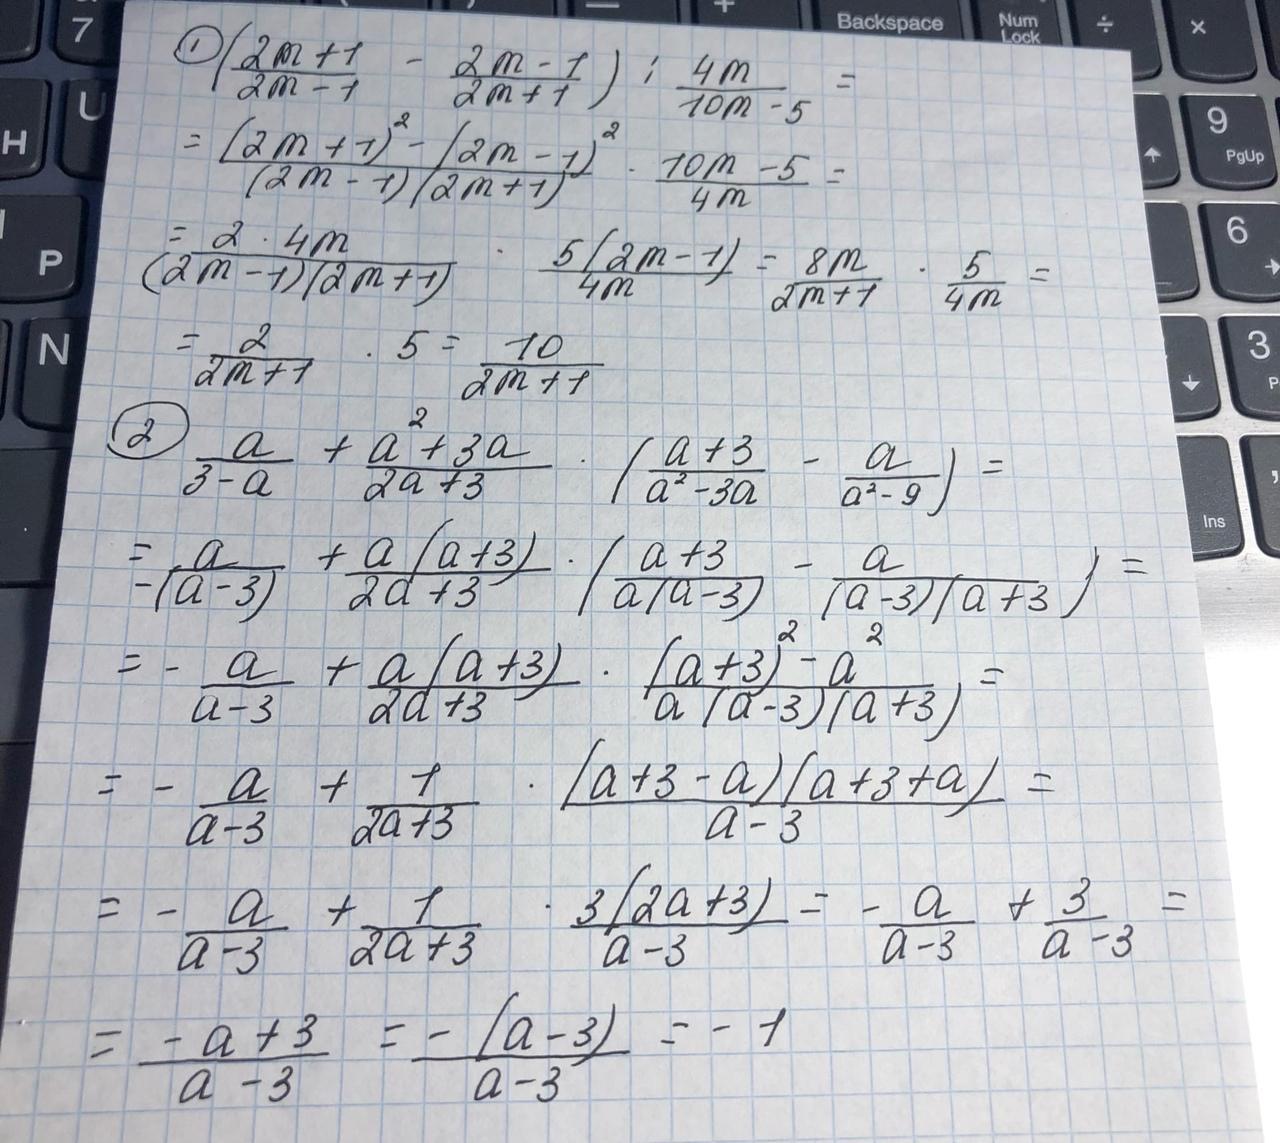 7 Backspace Num Lock ÷ ×
① ( (2m+1)/(2m-1) - (2m-1)/(2m+1) ) : 4m/(10m-5) =
U 9 PgUp
H
= ((2m+1)² - (2m-1)²)/((2m-1)(2m+1)) · (10m-5)/4m =
P 6
= (2·4m)/((2m-1)(2m+1)) · 5(2m-1)/4m = 8m/(2m+1) · 5/4m =
N 3
= 2/(2m+1) · 5 = 10/(2m+1)
② a/(3-a) + (a²+3a)/(2a+3) · ( (a+3)/(a²-3a) - a/(a²-9) ) =
Ins
= a/(-(a-3)) + a(a+3)/(2a+3) · ( (a+3)/(a(a-3)) - a/((a-3)(a+3) ) =
= - a/(a-3) + a(a+3)/(2a+3) · ((a+3)² - a²)/(a(a-3)(a+3)) =
= - a/(a-3) + 1/(2a+3) · (a+3-a)(a+3+a)/(a-3) =
= - a/(a-3) + 1/(2a+3) · 3(2a+3)/(a-3) = - a/(a-3) + 3/(a-3) =
= (-a+3)/(a-3) = -(a-3)/(a-3) = -1